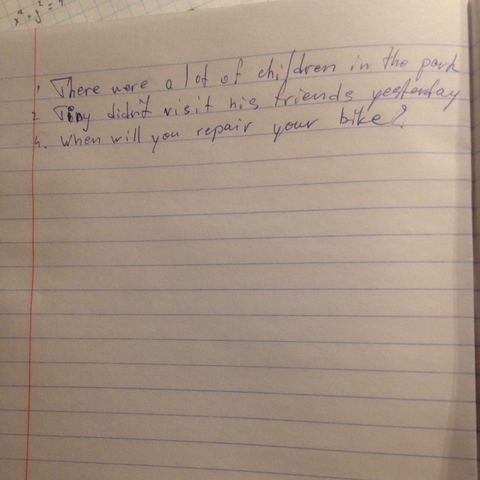 x⁴ + y² =
1 There were a lot of children in the park
2 didn't visit his friends yesterday
4. When will you repair your bike?